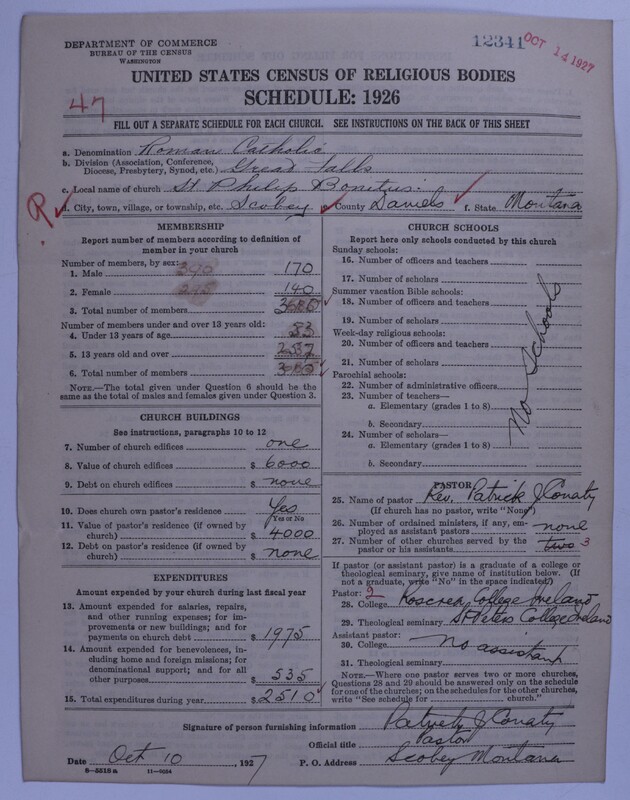 DEPARTMENT OF COMMERCE
BUREAU OF THE CENSUS
WASHINGTON
12341
OCT 14 1927
UNITED STATES CENSUS OF RELIGIOUS BODIES
SCHEDULE: 1926
47
FILL OUT A SEPARATE SCHEDULE FOR EACH CHURCH. SEE INSTRUCTIONS ON THE BACK OF THIS SHEET
a. Denomination Roman Catholic
b. Division (Association, Conference, Diocese, Presbytery, Synod, etc.) Great Falls
c. Local name of church St Philip Bonitus
R. d. City, town, village, or township, etc. Scobey e. County Daniels f. State Montana
MEMBERSHIP
Report number of members according to definition of
member in your church
Number of members, by sex:
1. Male 170
2. Female 140
3. Total number of members
Number of members under and over 13 years old:
4. Under 13 years of age 53
5. 13 years old and over
6. Total number of members
NOTE.—The total given under Question 6 should be
same as the total of males and females given under Question 3.
CHURCH BUILDINGS
See instructions, paragraphs 10 to 12
7. Number of church edifices one
8. Value of church edifices $ 6000
9. Debt on church edifices $ none
10. Does church own pastor's residence? Yes
Yes or No
11. Value of pastor's residence (if owned by
church) $ 4000
12. Debt on pastor's residence (if owned by
church) $ none
EXPENDITURES
Amount expended by your church during last fiscal year
13. Amount expended for salaries, repairs,
and other running expenses; for im-
provements or new buildings; and for
payments on church debt $ 1975
14. Amount expended for benevolences, in-
cluding home and foreign missions; for
denominational support; and for all
other purposes $ 535
15. Total expenditures during year $ 2510
CHURCH SCHOOLS
Report here only schools conducted by this church
Sunday schools:
16. Number of officers and teachers
17. Number of scholars
Summer vacation Bible schools:
18. Number of officers and teachers
19. Number of scholars
Week-day religious schools:
20. Number of officers and teachers
21. Number of scholars
Parochial schools:
22. Number of administrative officers
23. Number of teachers—
a. Elementary (grades 1 to 8)
b. Secondary
24. Number of scholars—
a. Elementary (grades 1 to 8)
b. Secondary
No Schools
PASTOR
25. Name of pastor Rev. Patrick J Conaty
(If church has no pastor, write "None")
26. Number of ordained ministers, if any, em-
ployed as assistant pastors none
27. Number of other churches served by the
pastor or his assistants two 3
If pastor (or assistant pastor) is a graduate of a college or
theological seminary, give name of institution below. (If
not a graduate, write "No" in the space indicated)
Pastor: 2
28. College Roscrea College Ireland
29. Theological seminary St Peters College Ireland
Assistant pastor:
30. College No assistant
31. Theological seminary
NOTE.—Where one pastor serves two or more churches,
Questions 28 and 29 should be answered only on the schedule
for one of the churches; on the schedules for the other churches,
write "See schedule for church."
Signature of person furnishing information Patrick J Conaty
Official title Pastor
Date Oct 10, 1927 P. O. Address Scobey Montana
8-5318a 11-9024